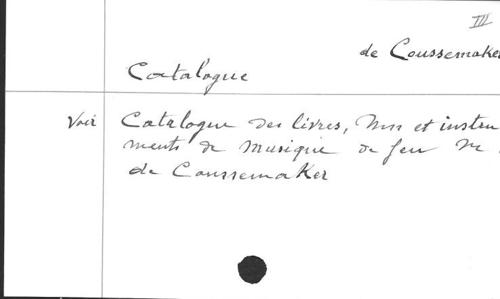 III
de Coussemaker
Catalogue
Voir Catalogue des livres, Mss et instru
ments de Musique de feu M
de Coussemaker